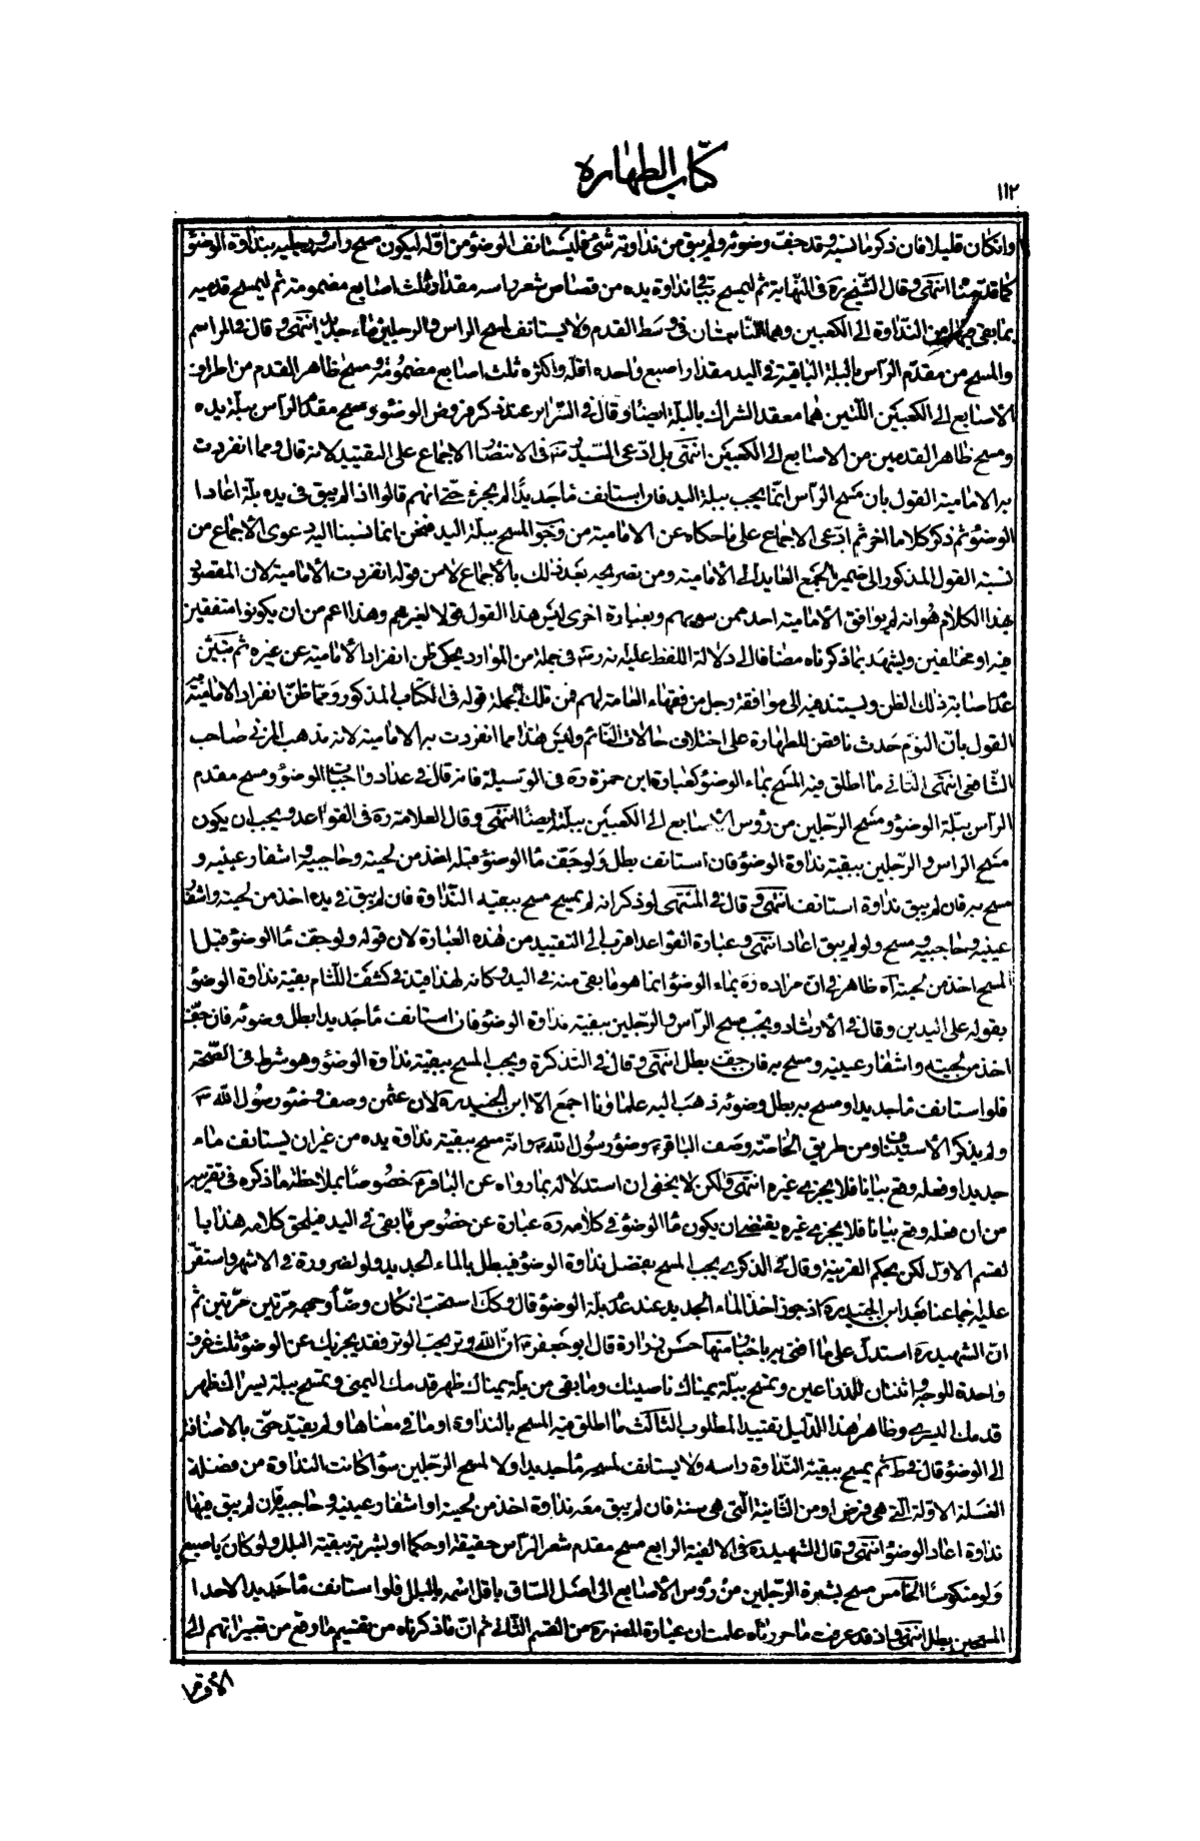 كتاب الطهارة
١١٢
وان كان قليلا فان ذكر ما نسيه وقد جف وضوئه ولم يبق من نداوته شئ فليستانف الوضوء من اوله ليكون مسح راسه ورجليه بنداوة الوضوء
كما قدمنا انتهى وقال الشيخ ره في النهاية ثم ليمسح بباقي نداوة يده من قصاص شعر راسه مقدار ثلث اصابع مضمومة ثم ليمسح قدميه
بما بقي من النداوة الى الكعبين وهما النابتان في وسط القدم ولا يستانف لمسح الراس والرجلين ماء جديدا انتهى وقال في المراسم
والمسح من مقدم الراس بالبلة الباقية في اليد مقدار اصبع واحده اقله واكثره ثلث اصابع مضمومة ومسح ظاهر القدم من اطراف
الاصابع الى الكعبين اللذين هما معقد الشراك بالبلة ايضا وقال في السرائر عند ذكر فروض الوضوء ومسح مقدم الراس ببلة يده
ومسح ظاهر القدمين من الاصابع الى الكعبين انتهى بل ادعى السيد ره في الانتصار الاجماع على التقييد لانه قال ومما انفردت
به الامامية القول بان مسح الراس انما يجب ببلة اليد فان استانف ماء جديدا لم يجزء حتى انهم قالوا اذا لم يبق في يده بلة اعاد
الوضوء ثم ذكر كلاما اخر ثم ادعى الاجماع على ما حكاه عن الامامية من وجوب المسح ببلة اليد فنحن انما نسبنا اليه دعوى الاجماع من
نسبة القول المذكور الى ضمير الجمع العايد الى الامامية ومن تصريحه بعد ذلك بالاجماع لا من قوله انفردت الامامية لان المقصود
بهذا الكلام هو انه لم يوافق الامامية احد ممن سواهم وبعبارة اخرى ليس هذا القول قولا لغيرهم وهذا اعم من ان يكونوا متفقين
فيه او مختلفين ويشهد بما ذكرناه مضافا الى دلالة اللفظ عليه انه ره في جملة من الموارد يحكى ظن انفراد الامامية عن غيره ثم يبين
عدم اصابة ذلك الظن ويستند فيه الى موافقة رجل من فقهاء العامة لهم فمن تلك الجملة قوله في الكتاب المذكور ومما ظن انفراد الامامية به
القول بان النوم حدث ناقض للطهارة على اختلاف حالات النائم وليس هذا مما انفردت به الامامية لانه مذهب المزني صاحب
الشافعي انتهى الثاني ما اطلق فيه المسح بماء الوضوء كعبارة ابن حمزة ره في الوسيلة فانه قال في عداد واجبات الوضوء ومسح مقدم
الراس ببلة الوضوء ومسح الرجلين من رؤس الاصابع الى الكعبين ببلة ايضا انتهى وقال العلامة ره في القواعد ويجب ان يكون
مسح الراس والرجلين ببقية نداوة الوضوء فان استانف بطل ولو جف ماء الوضوء قبله اخذ من لحيته وحاجبيه واشفار عينيه و
مسح به فان لم يبق نداوة استانف انتهى وقال في المنتهى لو ذكر انه لم يمسح مسح ببقية النداوة فان لم يبق في يده اخذ من لحيته واشفار
عينيه وحاجبيه ومسح ولو لم يبق اعاد انتهى وعبارة القواعد اقرب الى التقييد من هذه العبارة لان قوله ولو جف ماء الوضوء قبل
المسح اخذ من لحيته آه ظاهر في ان مراده ره بماء الوضوء انما هو ما بقي منه في اليد وكانه لهذا قيد في كشف اللثام بقية نداوة الوضوء
بقوله على اليدين وقال في الارشاد ويجب مسح الراس والرجلين ببقية نداوة الوضوء فان استانف ماء جديدا بطل وضوئه فان جف
اخذ من لحيته واشفار عينيه ومسح به فان جف بطل انتهى وقال في التذكرة ويجب المسح ببقية نداوة الوضوء وهو شرط في الصحة
فلو استانف ماء جديدا ومسح به بطل وضوئه ذهب اليه علماؤنا اجمع الا ابن الجنيد ره لان عثمن وصف وضوء رسول الله ص
ولم يذكر الاستيناف ومن طريق الخاصة وصف الباقر ع وضوء رسول الله ص وانه مسح ببقية نداوة يده من غير ان يستانف ماء
جديدا وفعله وقع بيانا فلا يجزي غيره انتهى ولكن لا يخفى ان استدلاله بما رواه عن الباقر ع خصوصا بملاحظة ما ذكره في تقريبه
من ان فعله وقع بيانا فلا يجزي غيره يقتضي ان يكون ماء الوضوء في كلامه ره عبارة عن خصوص ما بقي في اليد فيلحق كلامه هذا با
لقسم الاول لكن بحكم القرينة وقال في الذكرى يجب المسح بفضل نداوة الوضوء فيبطل بالماء الجديد ولو لضرورة في الاشهر واستقر
عليه اجماعنا بعد ابن الجنيد ره اذ جوز اخذ الماء الجديد عند عدم بلة الوضوء قال وكذا استحب ان كان وضأ وجهه مرتين مرتين ثم
ان الشهيد ره استدل على ما افتى به باخبار منها حسن زرارة قال ابو جعفر ع ان الله وتر يحب الوتر فقد يجزيك عن الوضوء ثلث غرف
واحدة للوجه واثنتان للذراعين وتمسح ببلة يمناك ناصيتك وما بقي من بلة يمناك ظهر قدمك اليمنى وتمسح ببلة يسراك ظهر
قدمك اليسرى وظاهر هذا الدليل تقييد المطلوب الثالث ما اطلق فيه المسح بالنداوة او ما في معناها ولم يقيد حتى بالاضافة
الى الوضوء قال في ط ثم يمسح ببقية النداوة راسه ولا يستانف لمسحه ماء جديدا ولا لمسح الرجلين سواء كانت النداوة من فضلة
الغسلة الاولة التي هي فرض او من الثانية التي هي سنة فان لم يبق معه نداوة اخذ من لحيته او اشفار عينيه وحاجبيه فان لم يبق فيها
نداوة اعاد الوضوء انتهى وقال الشهيد ره في الالفية الرابع مسح مقدم شعر الراس حقيقة او حكما او بشرته ببقية البلل ولو كان باصبع
ولو منكوسا الخامس مسح بشرة الرجلين من رؤس الاصابع الى اصل الساق باقل اسمه بالبلل فلو استانف ماء جديدا لاحد ا
لمسحين بطل انتهى واذ قد عرفت ما حررناه علمت ان عبارة المصنف ره من القسم الثاني ثم ان ما ذكرناه من تقسيم ما وقع من تعبيراتهم الى
الاقوا